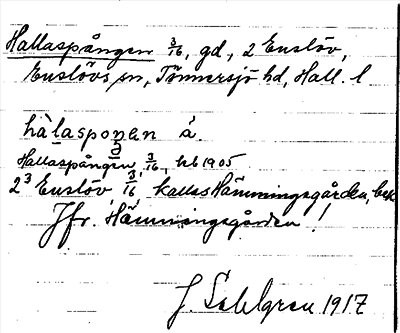 Hallaspången 3/16, gd, 2 Enslöv,
Enslövs sn, Tönnersjö hd, Hall. l
hàlaspoŋen å
Hallaspången, 3/16, hb 1905
2³ Enslöv 3/16 kallas Hämmingsgården, bek
Jfr. Hämmingsgården!
J. Sahlgren 1917